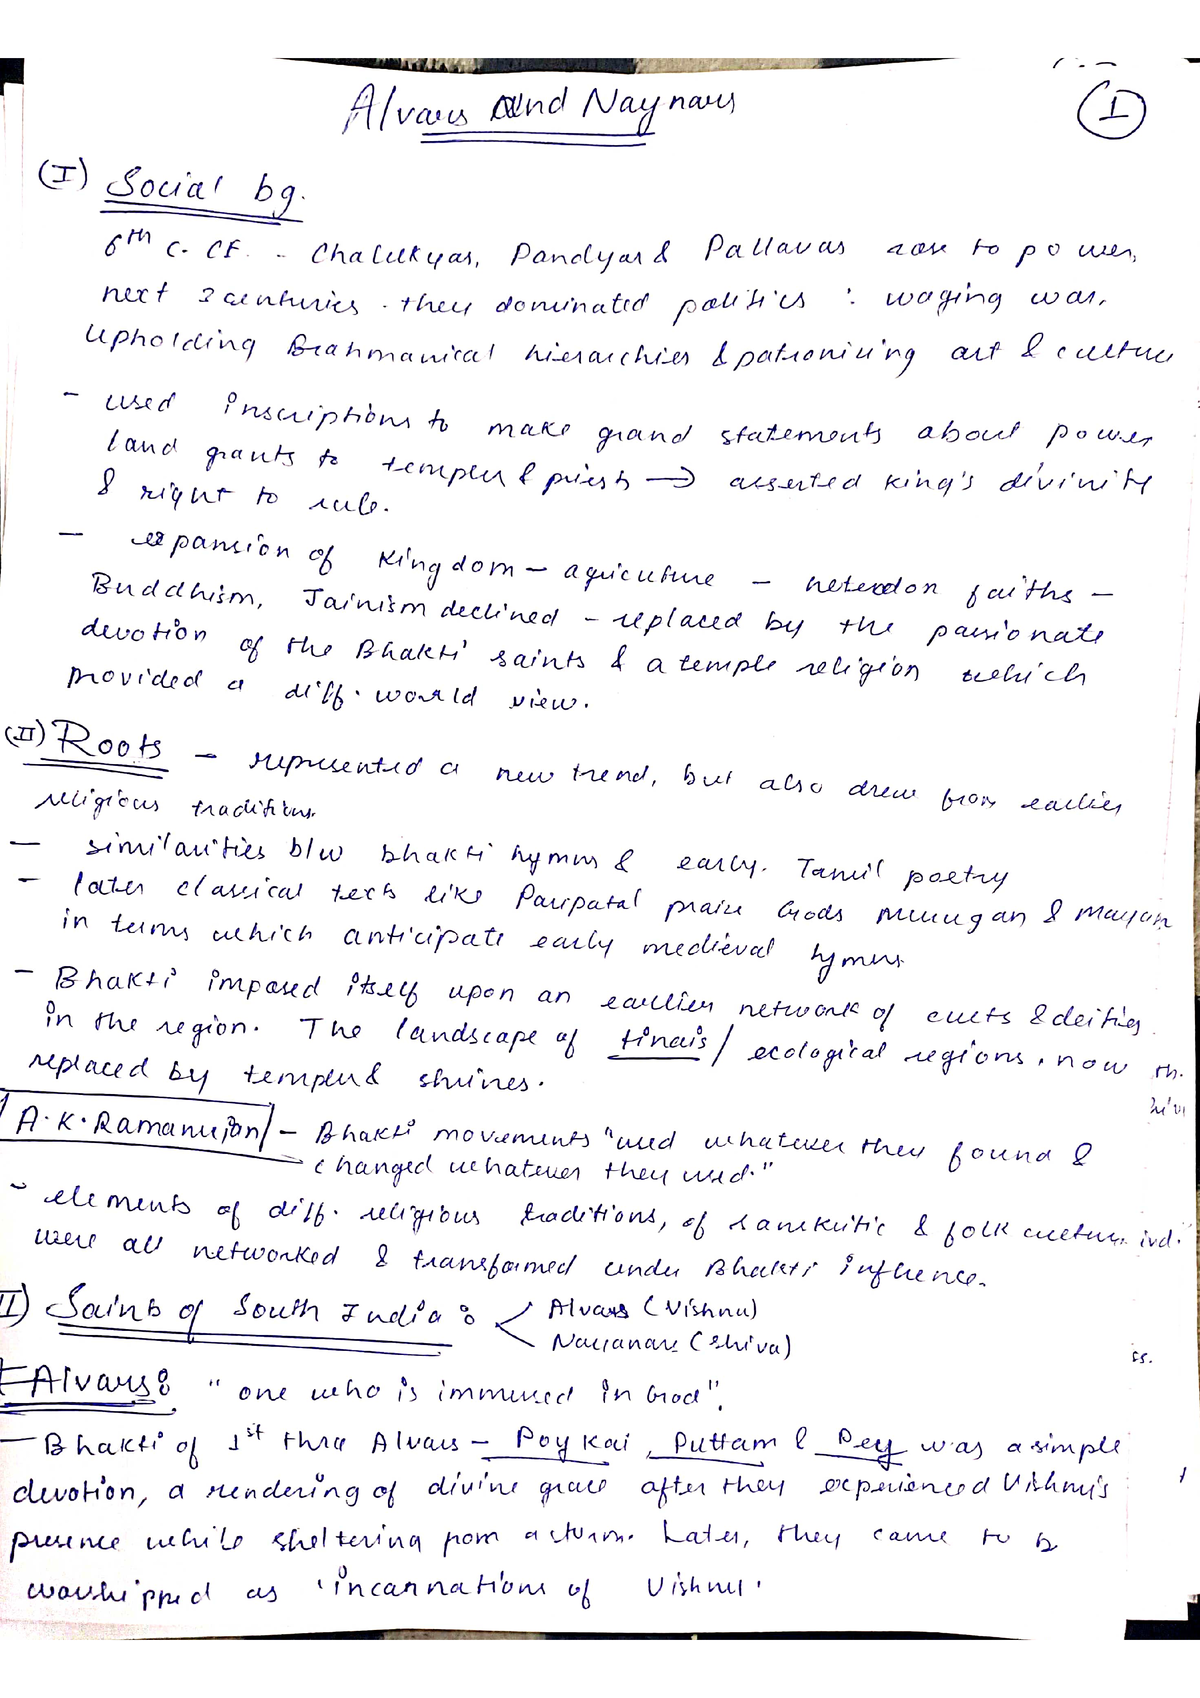 Alvars and Naynars
I
(I) Social bg.
6th C. CE. - Chalukyas, Pandyas & Pallavas rose to power,
next 3 centuries - they dominated politics : waging war,
upholding Brahmanical hierarchies & patronising art & culture
- used inscriptions to make grand statements about power
land grants to temples & priests → asserted king's divinity
& right to rule.
- expansion of kingdom - agriculture - heterodox faiths -
Buddhism, Jainism declined - replaced by the passionate
devotion of the Bhakti saints & a temple religion which
provided a diff. world view.
(II) Roots - represented a new trend, but also drew from earlier
religious traditions.
- similarities b/w bhakti hymns & early. Tamil poetry
- later classical texts like Paripatal praise Gods Murugan & Mayon
in terms which anticipate early medieval hymns
- Bhakti imposed itself upon an earlier network of cults & deities
in the region. The landscape of tinais/ ecological regions, now
replaced by temples & shrines.
A.K. Ramanujan - Bhakti movements "used whatever they found &
changed whatever they used."
- elements of diff. religious traditions, of sanskritic & folk culture
were all networked & transformed under Bhakti influence.
II) Saints of South India : Alvars (Vishnu)
Nayanars (Shiva)
Alvars : "one who is immersed in God".
- Bhakti of 1st three Alvars - Poykai, Puttam & Pey was a simple
devotion, a rendering of divine grace after they experienced Vishnu's
presence while sheltering from a storm. Later, they came to be
worshipped as 'incarnations of Vishnu'